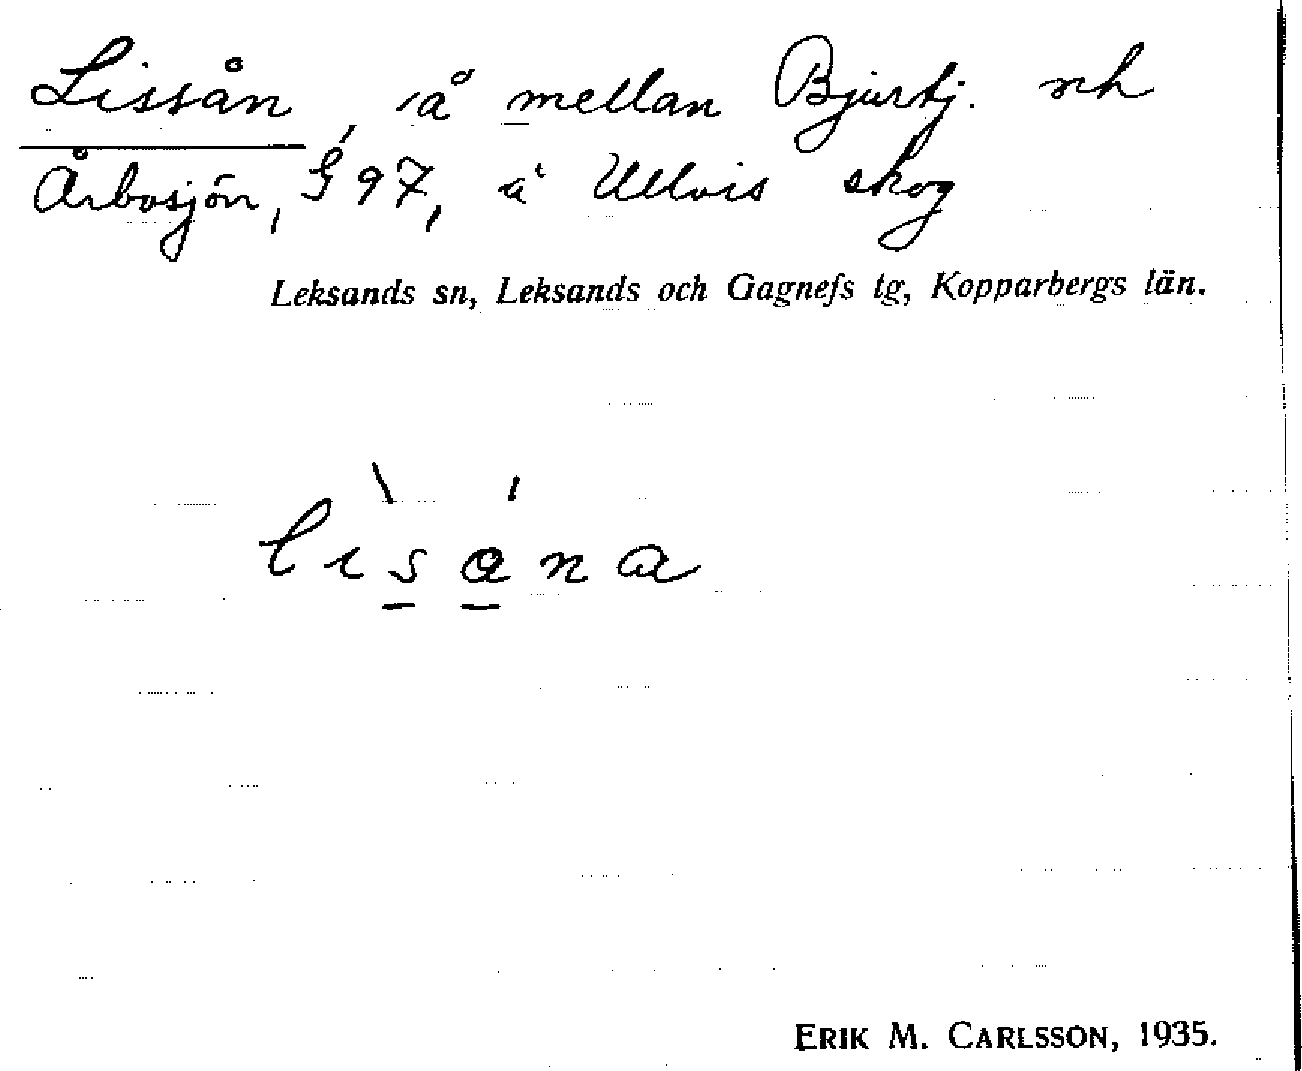 Lissån, å mellan Bjurtj. och
Årbosjön, G 97, å Ullvis skog
Leksands sn, Leksands och Gagnefs tg, Kopparbergs län.
lisåna
ERIK M. CARLSSON, 1935.